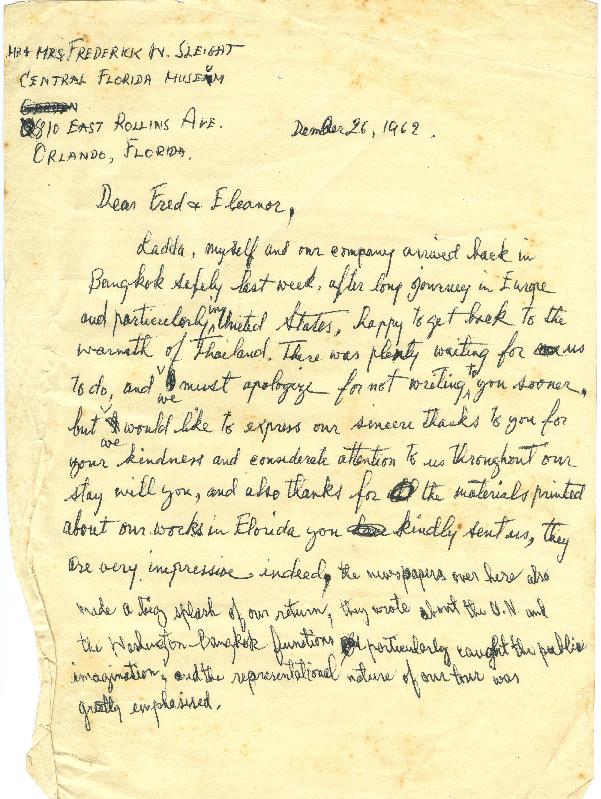 MR & MRS. FREDERICK W. SLEIGHT
CENTRAL FLORIDA MUSEUM
GARDEN
810 EAST ROLLINS AVE.
ORLANDO, FLORIDA.
December 26, 1962.
Dear Fred & Eleanor,
Ladda, myself and our company arrived back in
Bangkok safely last week, after long journey in Europe
and particularly in United States, happy to get back to the
warmth of Thailand. There was plenty waiting for us
to do, and we must apologize for not writing to you sooner,
but we would like to express our sincere thanks to you for
your kindness and considerate attention to us throughout our
stay with you, and also thanks for the materials printed
about our works in Florida you kindly sent us, they
are very impressive indeed, the newspapers over here also
made a big splash of our return, they wrote about the U.N and
the Washington-Bangkok functions particularly caught the public
imagination, and the representational nature of our tour was
greatly emphasised.